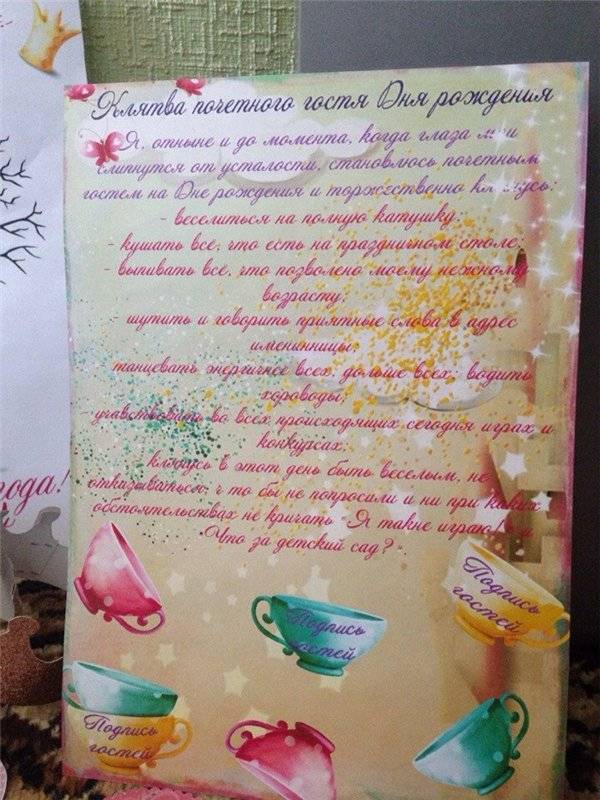 Клятва почетного гостя Дня рождения
Я, отныне и до момента, когда глаза мои
слипнутся от усталости, становлюсь почетным
гостем на Дне рождения и торжественно клянусь:
- веселиться на полную катушку;
- кушать всё, что есть на праздничном столе;
- выпивать всё, что позволено моему нежному
возрасту;
- шутить и говорить приятные слова в адрес
именинницы;
танцевать энергичнее всех, дольше всех; водить
хороводы;
учавствовать во всех происходящих сегодня играх и
конкурсах;
клянусь в этот день быть веселым, не
отказываться, ч то бы не попросили и ни при каких
обстоятельствах не кричать "Я такне играю!" и
"Что за детский сад?"
Подпись
гостей
Подпись
гостей
Подпись
гостей
года!